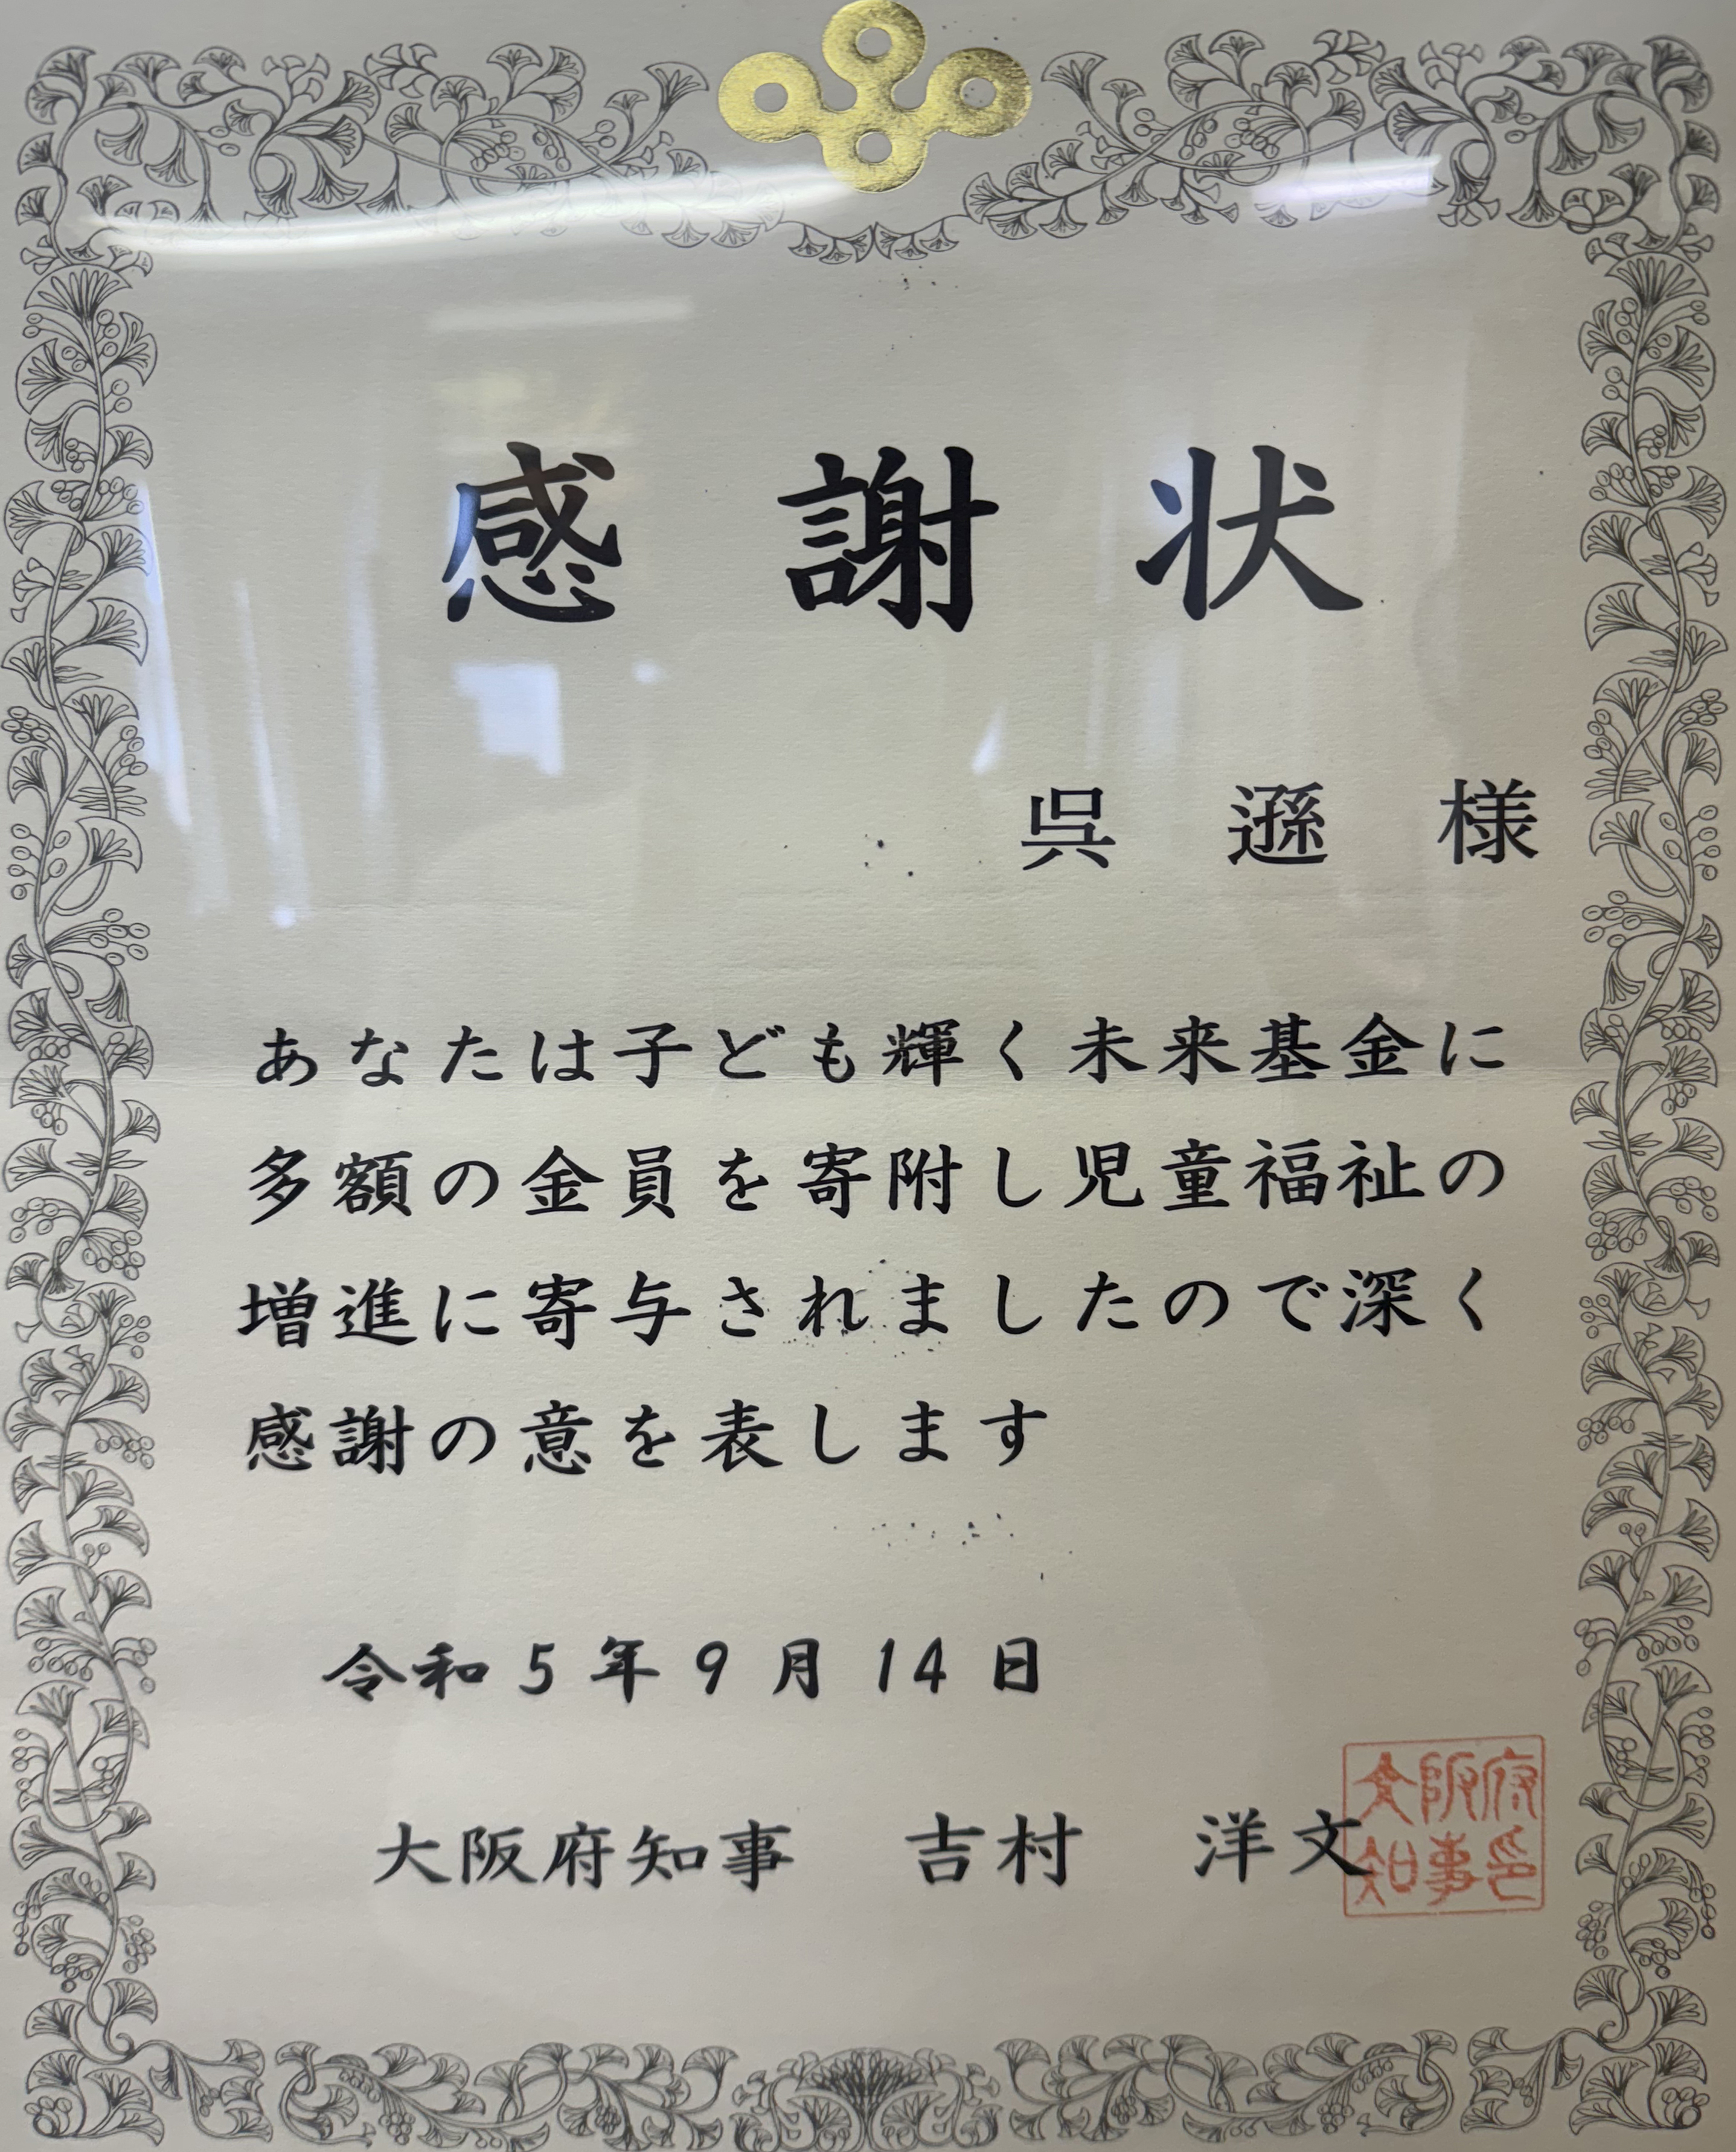 感謝状
呉 遜 様
あなたは子ども輝く未来基金に
多額の金員を寄附し児童福祉の
増進に寄与されましたので深く
感謝の意を表します
令和5年9月14日
大阪府知事 吉村 洋文
大阪府
知事印